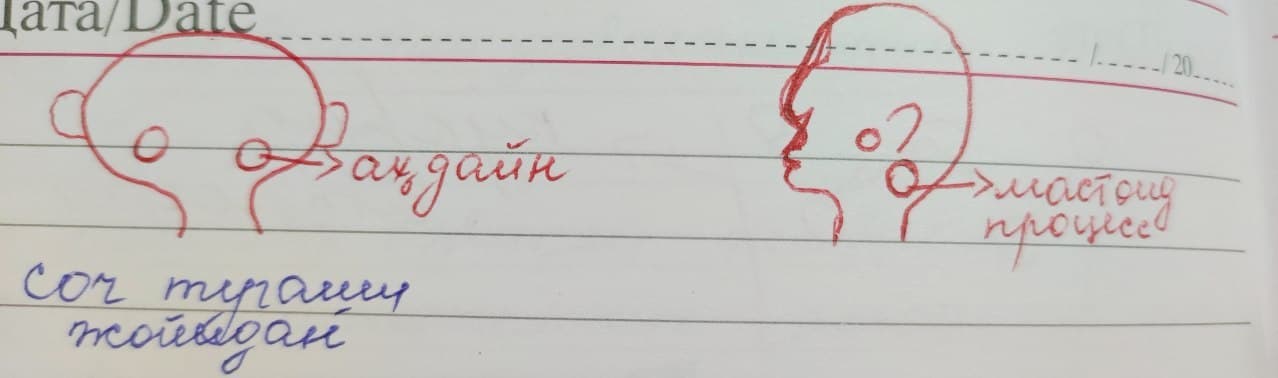 Дата/Date / /20
аҳдайн
мастоид
процесс
соч тугаши
жойидан